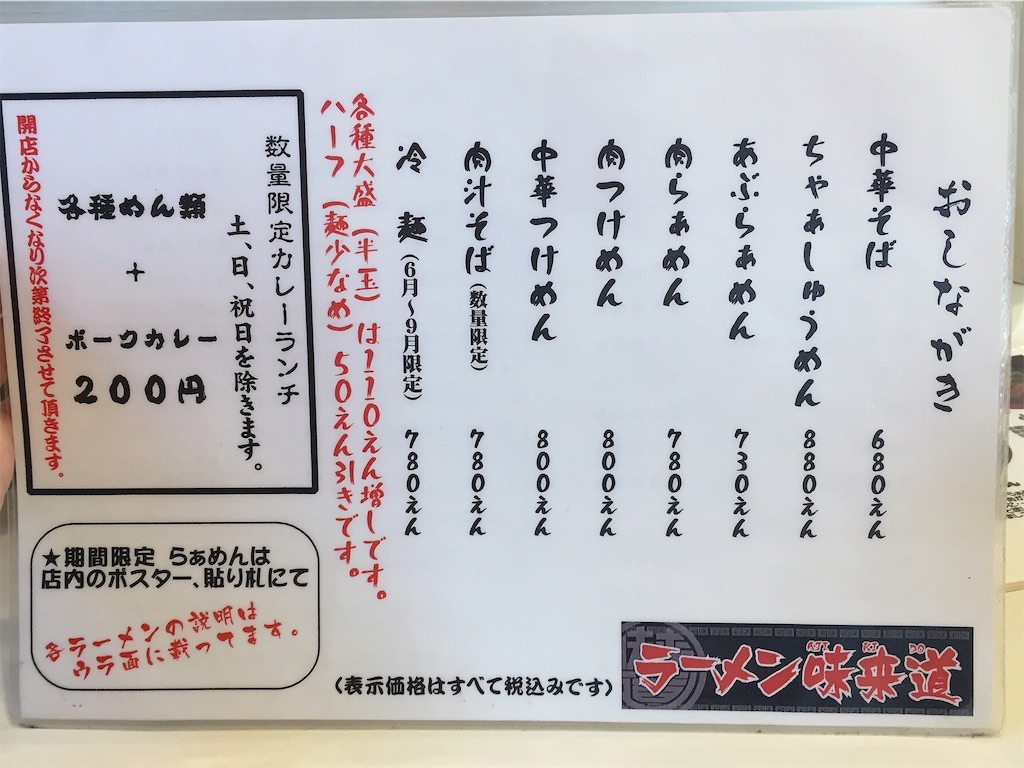 おしながき
中華そば 680えん
ちゃぁしゅうめん 880えん
あぶらぁめん 730えん
肉らぁめん 780えん
肉つけめん 800えん
中華つけめん 800えん
肉汁そば(数量限定) 780えん
冷 麺(6月〜9月限定) 780えん
各種大盛(半玉)は110えん増しです。
ハーフ(麺少なめ)50えん引きです。
数量限定カレーランチ
土、日、祝日を除きます。
各種めん類
+
ポークカレー
200円
開店からなくなり次第終了させて頂きます。
★期間限定 らぁめんは
店内のポスター、貼り札にて
各ラーメンの説明は
ウラ面に載ってます。
(表示価格はすべて税込みです)
AJI RI DO
ラーメン味来道